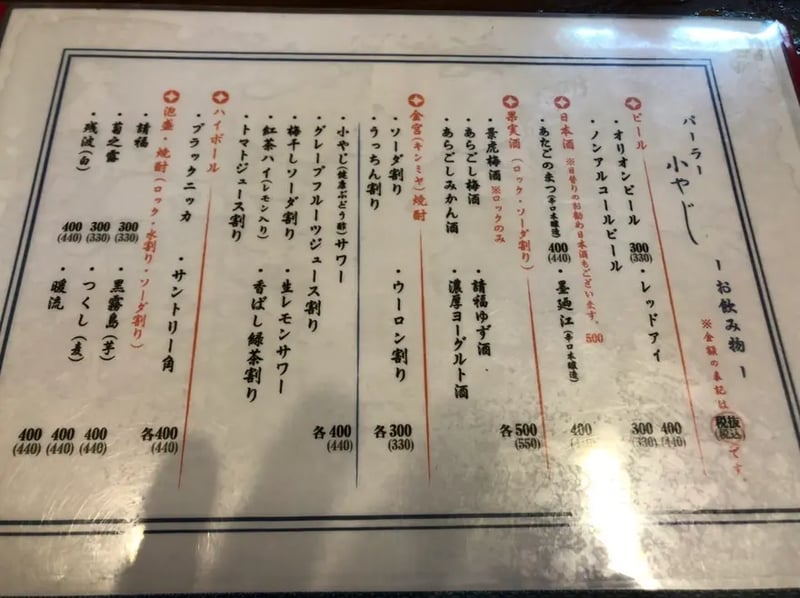 パーラー 小やじ
ー お飲み物 ー
※金額の表記は税抜(税込)です
ビール
・オリオンビール 300 (330)
・レッドアイ 400 (440)
・ノンアルコールビール 300 (330)
日本酒 ※日替りのお勧め日本酒もございます。500
・あたごのまつ(辛口本醸造) 400 (440)
・墨廼江(辛口本醸造) 400
果実酒(ロック・ソーダ割り)
・景虎梅酒 ※ロックのみ
・請福ゆず酒
・あらごし梅酒
・濃厚ヨーグルト酒
・あらごしみかん酒
各500 (550)
金宮(キンミヤ)焼酎
・ソーダ割り
・ウーロン割り
・うっちん割り
各300 (330)
・小やじ(健康ぶどう酢)サワー
・グレープフルーツジュース割り
・梅干しソーダ割り
・生レモンサワー
・紅茶ハイ(レモン入り)
・香ばし緑茶割り
・トマトジュース割り
各400 (440)
ハイボール
・ブラックニッカ
・サントリー角
各400 (440)
泡盛・焼酎(ロック・水割り・ソーダ割り)
・請福 300 (330)
・黒霧島(芋) 400 (440)
・菊之露 300 (330)
・つくし(麦) 400 (440)
・残波(白) 400 (440)
・暖流 400 (440)